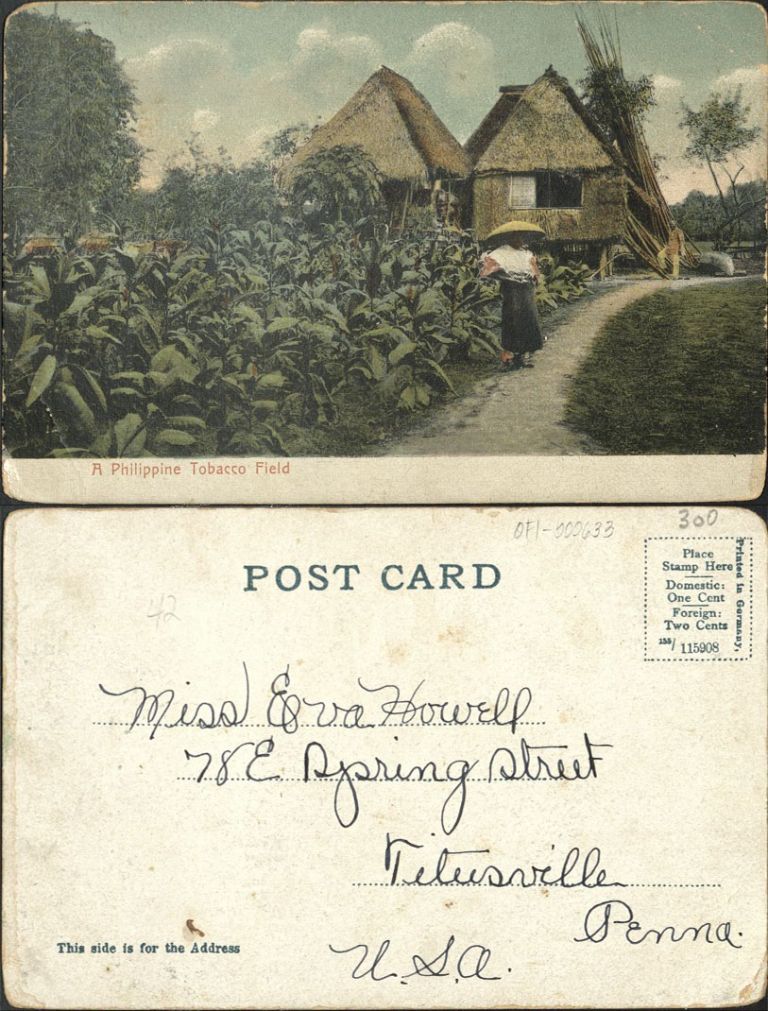 A Philippine Tobacco Field
OFI-000633
300
POST CARD
Place
Stamp Here
Domestic:
One Cent
Foreign:
Two Cents
155/115908
Printed in Germany,
42
Miss Eva Howell
78 E Spring Street
Titusville
Penna.
U.S.A.
This side is for the Address